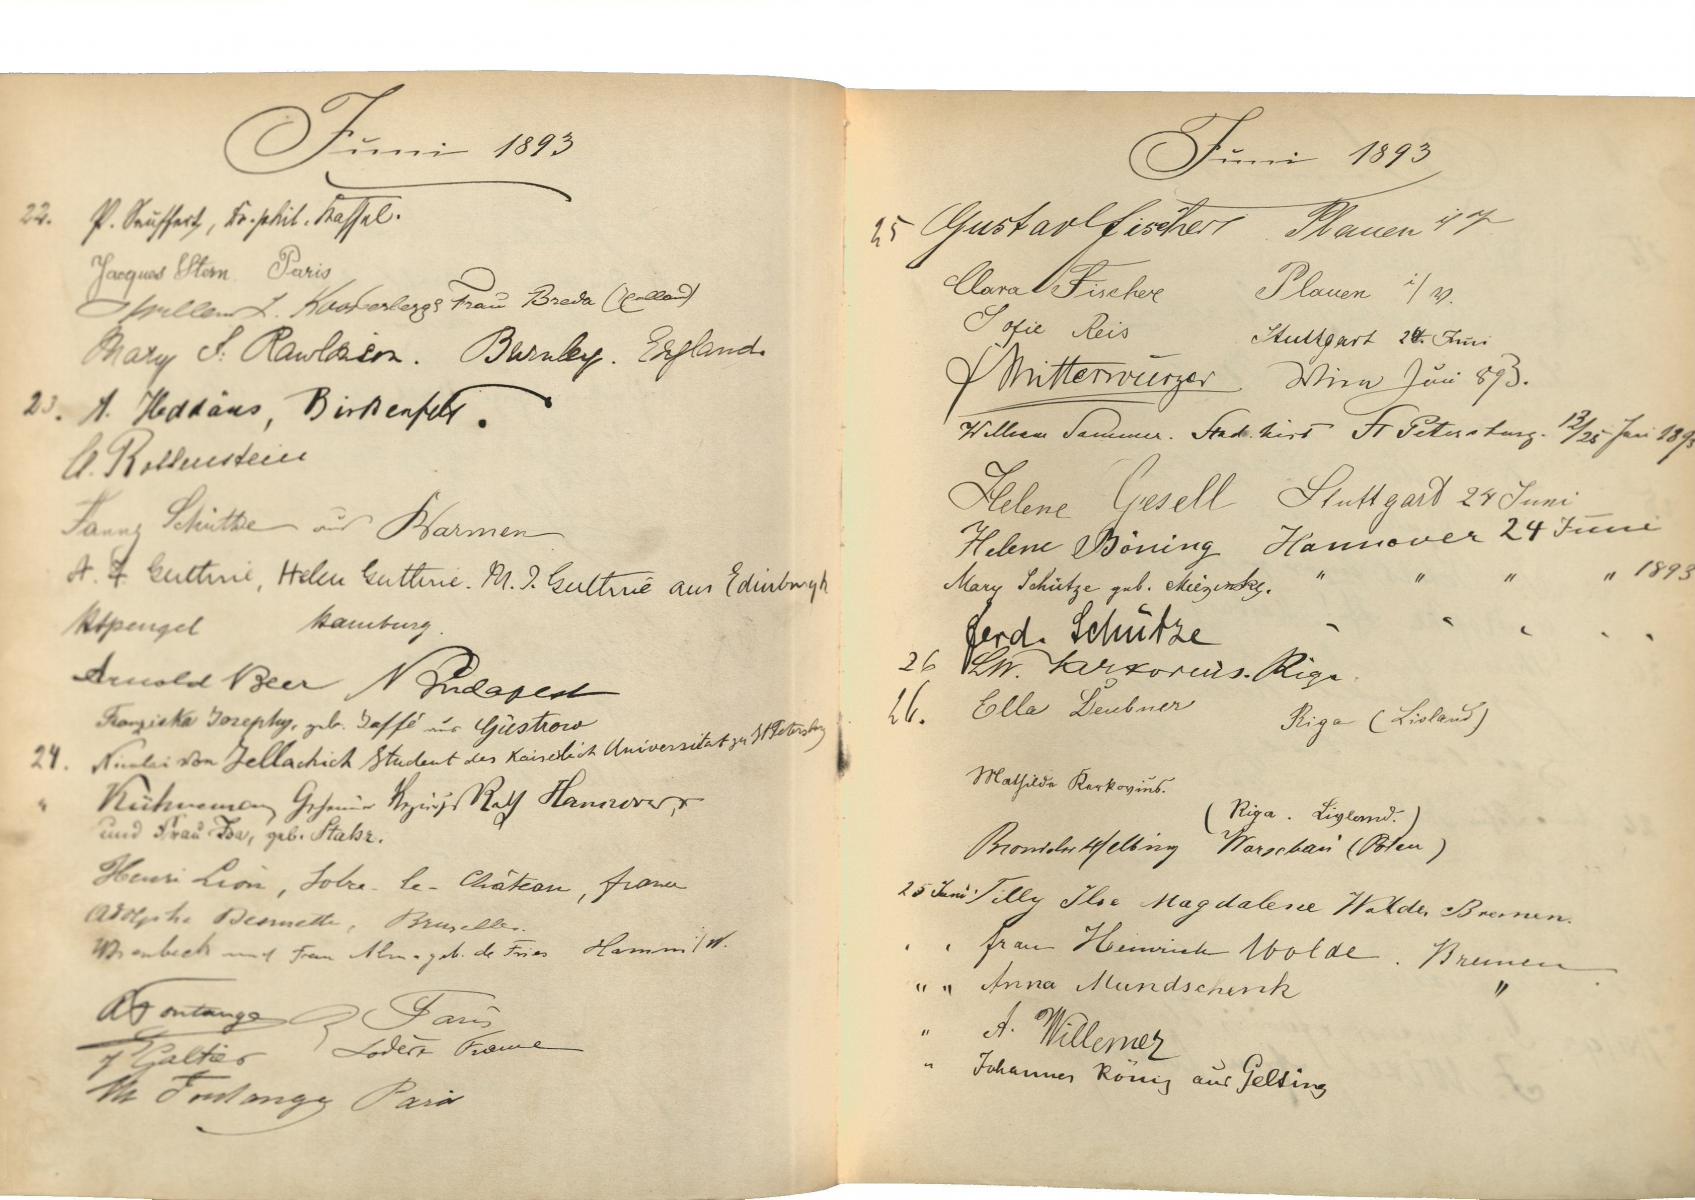 Juni 1893
22. P. Seuffert, Dr. phil. Kassel.
Jacques Stern Paris
Frau Breda (Holland)
Mary S. Rawlinson. Burnley. England.
23. A. Heddäus, Birkenfeld.
A. Rollenstein
Fanny Schültze aus Barmen
A. F Guthrie, Helen Guthrie. M. J. Guthrie aus Edinburgh
Hamburg.
Arnold Beer Budapest
Franziska Josephy, geb. Jaffé aus Güstrow
24. Nicolai von Jellachich Student der Kaiserlich Universität zu St Petersburg
" Kühnemann, Geheimer Rath Hannover,
und Frau Isa, geb.
Henri Lion, Solre-le-Château, france
Adolphe Bruxelles.
und Frau Alma geb. de Fries Hamm i/W.
A Fontange Paris
J Galtier France
M Fontange Paris
Juni 1893
25 Gustav Fischer Plauen i/V
Clara Fischer Plauen i/V.
Sofie Reis Stuttgart 24. Juni
Mitterwurzer Wien Juni 893.
William Sommer. St Petersburg. 13/25 Juni 1893
Helene Gesell Stuttgart 24 Juni
Helene Böning Hannover 24 Juni
Mary Schütze geb. " " " " 1893
Ferd. Schütze " " " " "
26 Karkovius. Riga
26. Ella Deubner Riga (Livland)
Mathilde Karkovius.
(Riga. Livland.)
Helbing Warschau (Polen)
25 Juni Tilly Ilse Magdalene Wolde, Bremen.
" " frau Heinrich Wolde. Bremen
" " Anna Mundschenk "
" A. Willemer
" Johannes König aus Gelting